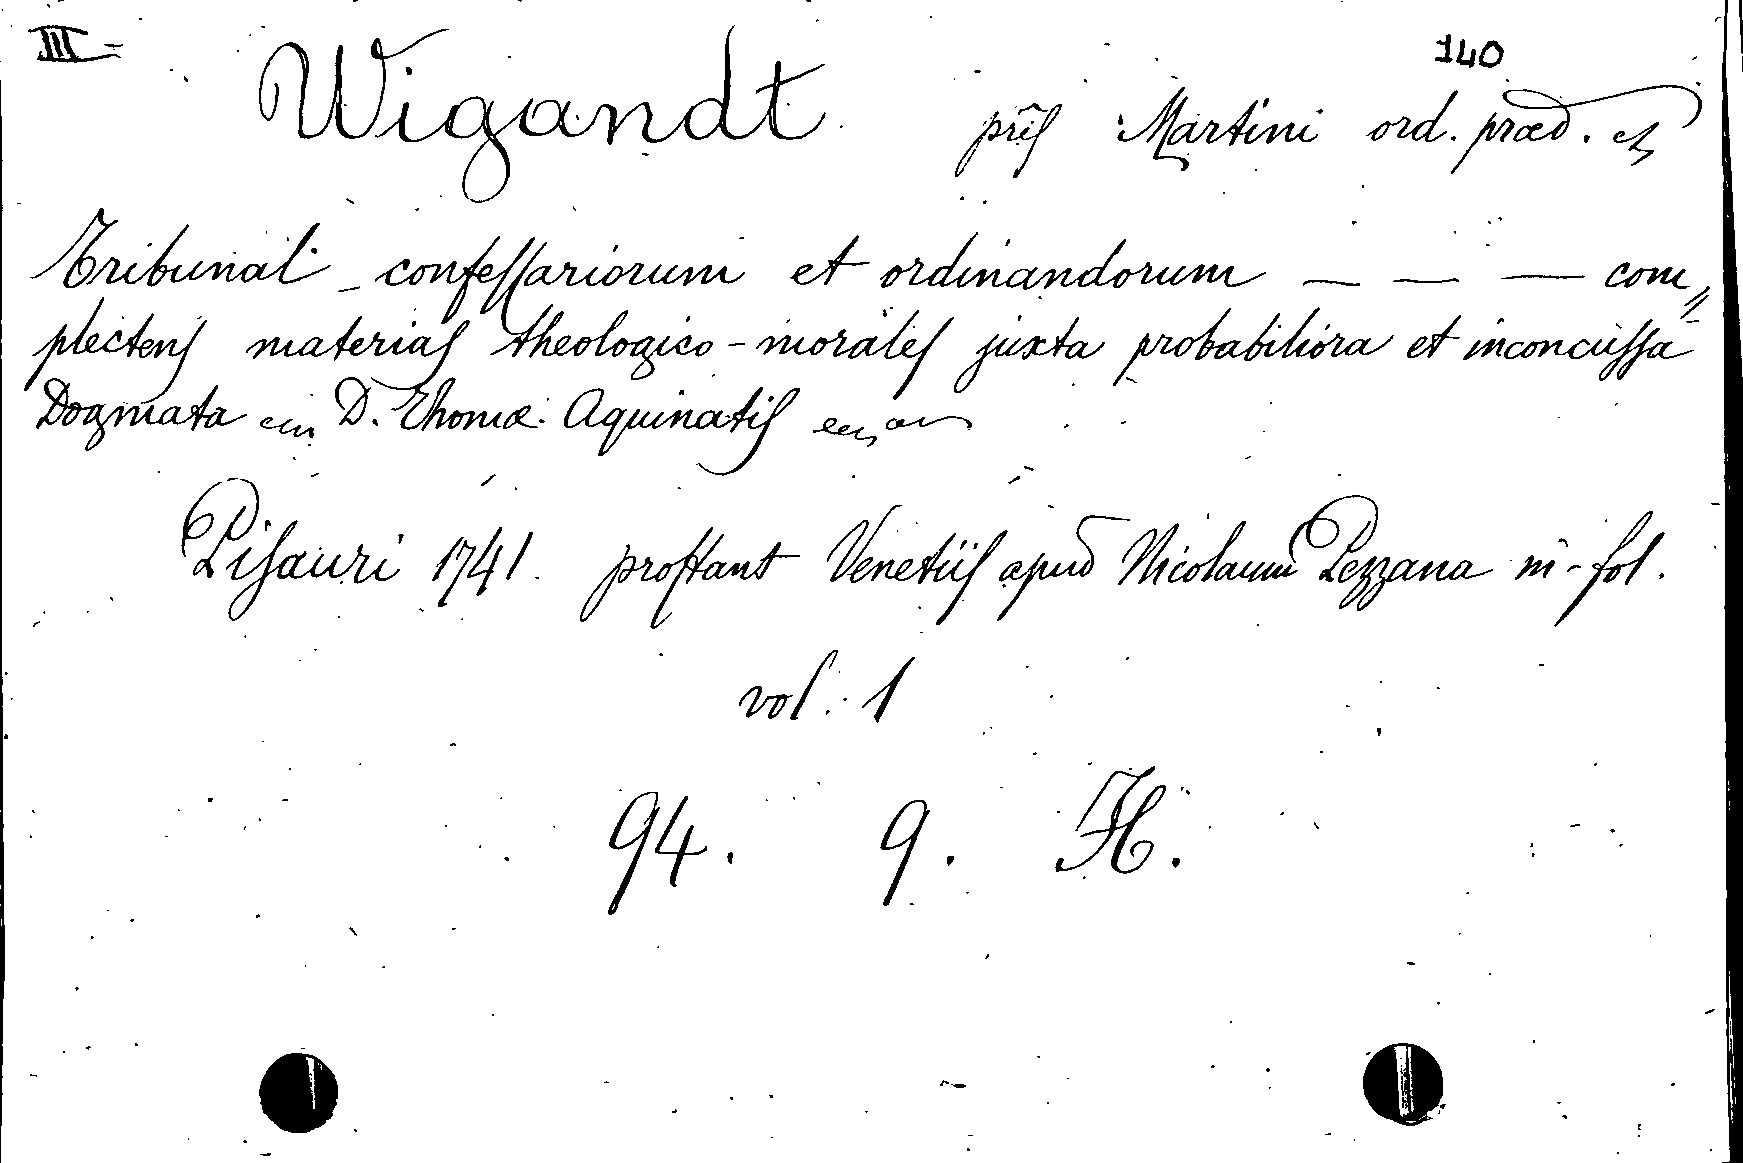 III= 140
Wigandt pr̃is Martini ord. præd. etc
Tribunal confessariorum et ordinandorum — — — com„
plectens materias theologico-morales juxta probabiliora et inconcussa
Dogmata D. Thomæ Aquinatis
Pisauri 1741. prostant Venetiis apud Nicolaum Pezzana in-fol.
vol. 1
94. 9. H.